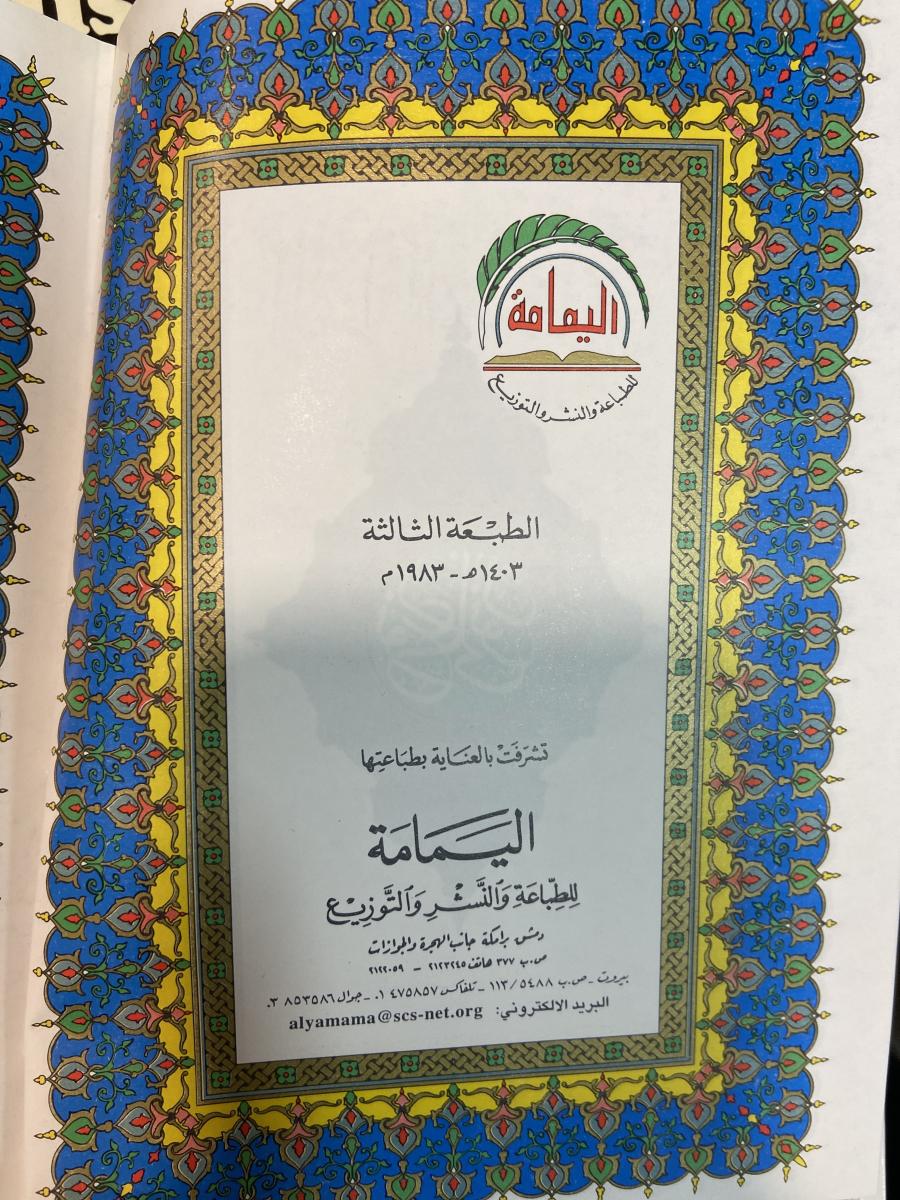 اليمامة
للطباعة والنشر والتوزيع
الطبْعَة الثالثة
١٤٠٣هـ - ١٩٨٣م
تشرّفَتْ بالعنَاية بطبَاعتِها
اليَمَامَة
لِلطِّبَاعَةِ وَالنَّشْرِ وَالتَّوْزِيْعِ
دمشق برامكة جانب الهجرة والجوازات
ص.ب ٣٧٧ هاتف ٢١٢٣٢٤٥ - ٢١٢٢٠٥٩
بيروت - ص.ب ١١٣/٥٤٨٨ - تلفاكس ٤٧٥٨٥٧ ٠١ - جوال ٨٥٣٥٨٦ ٠٣
البريد الالكتروني: alyamama@scs-net.org